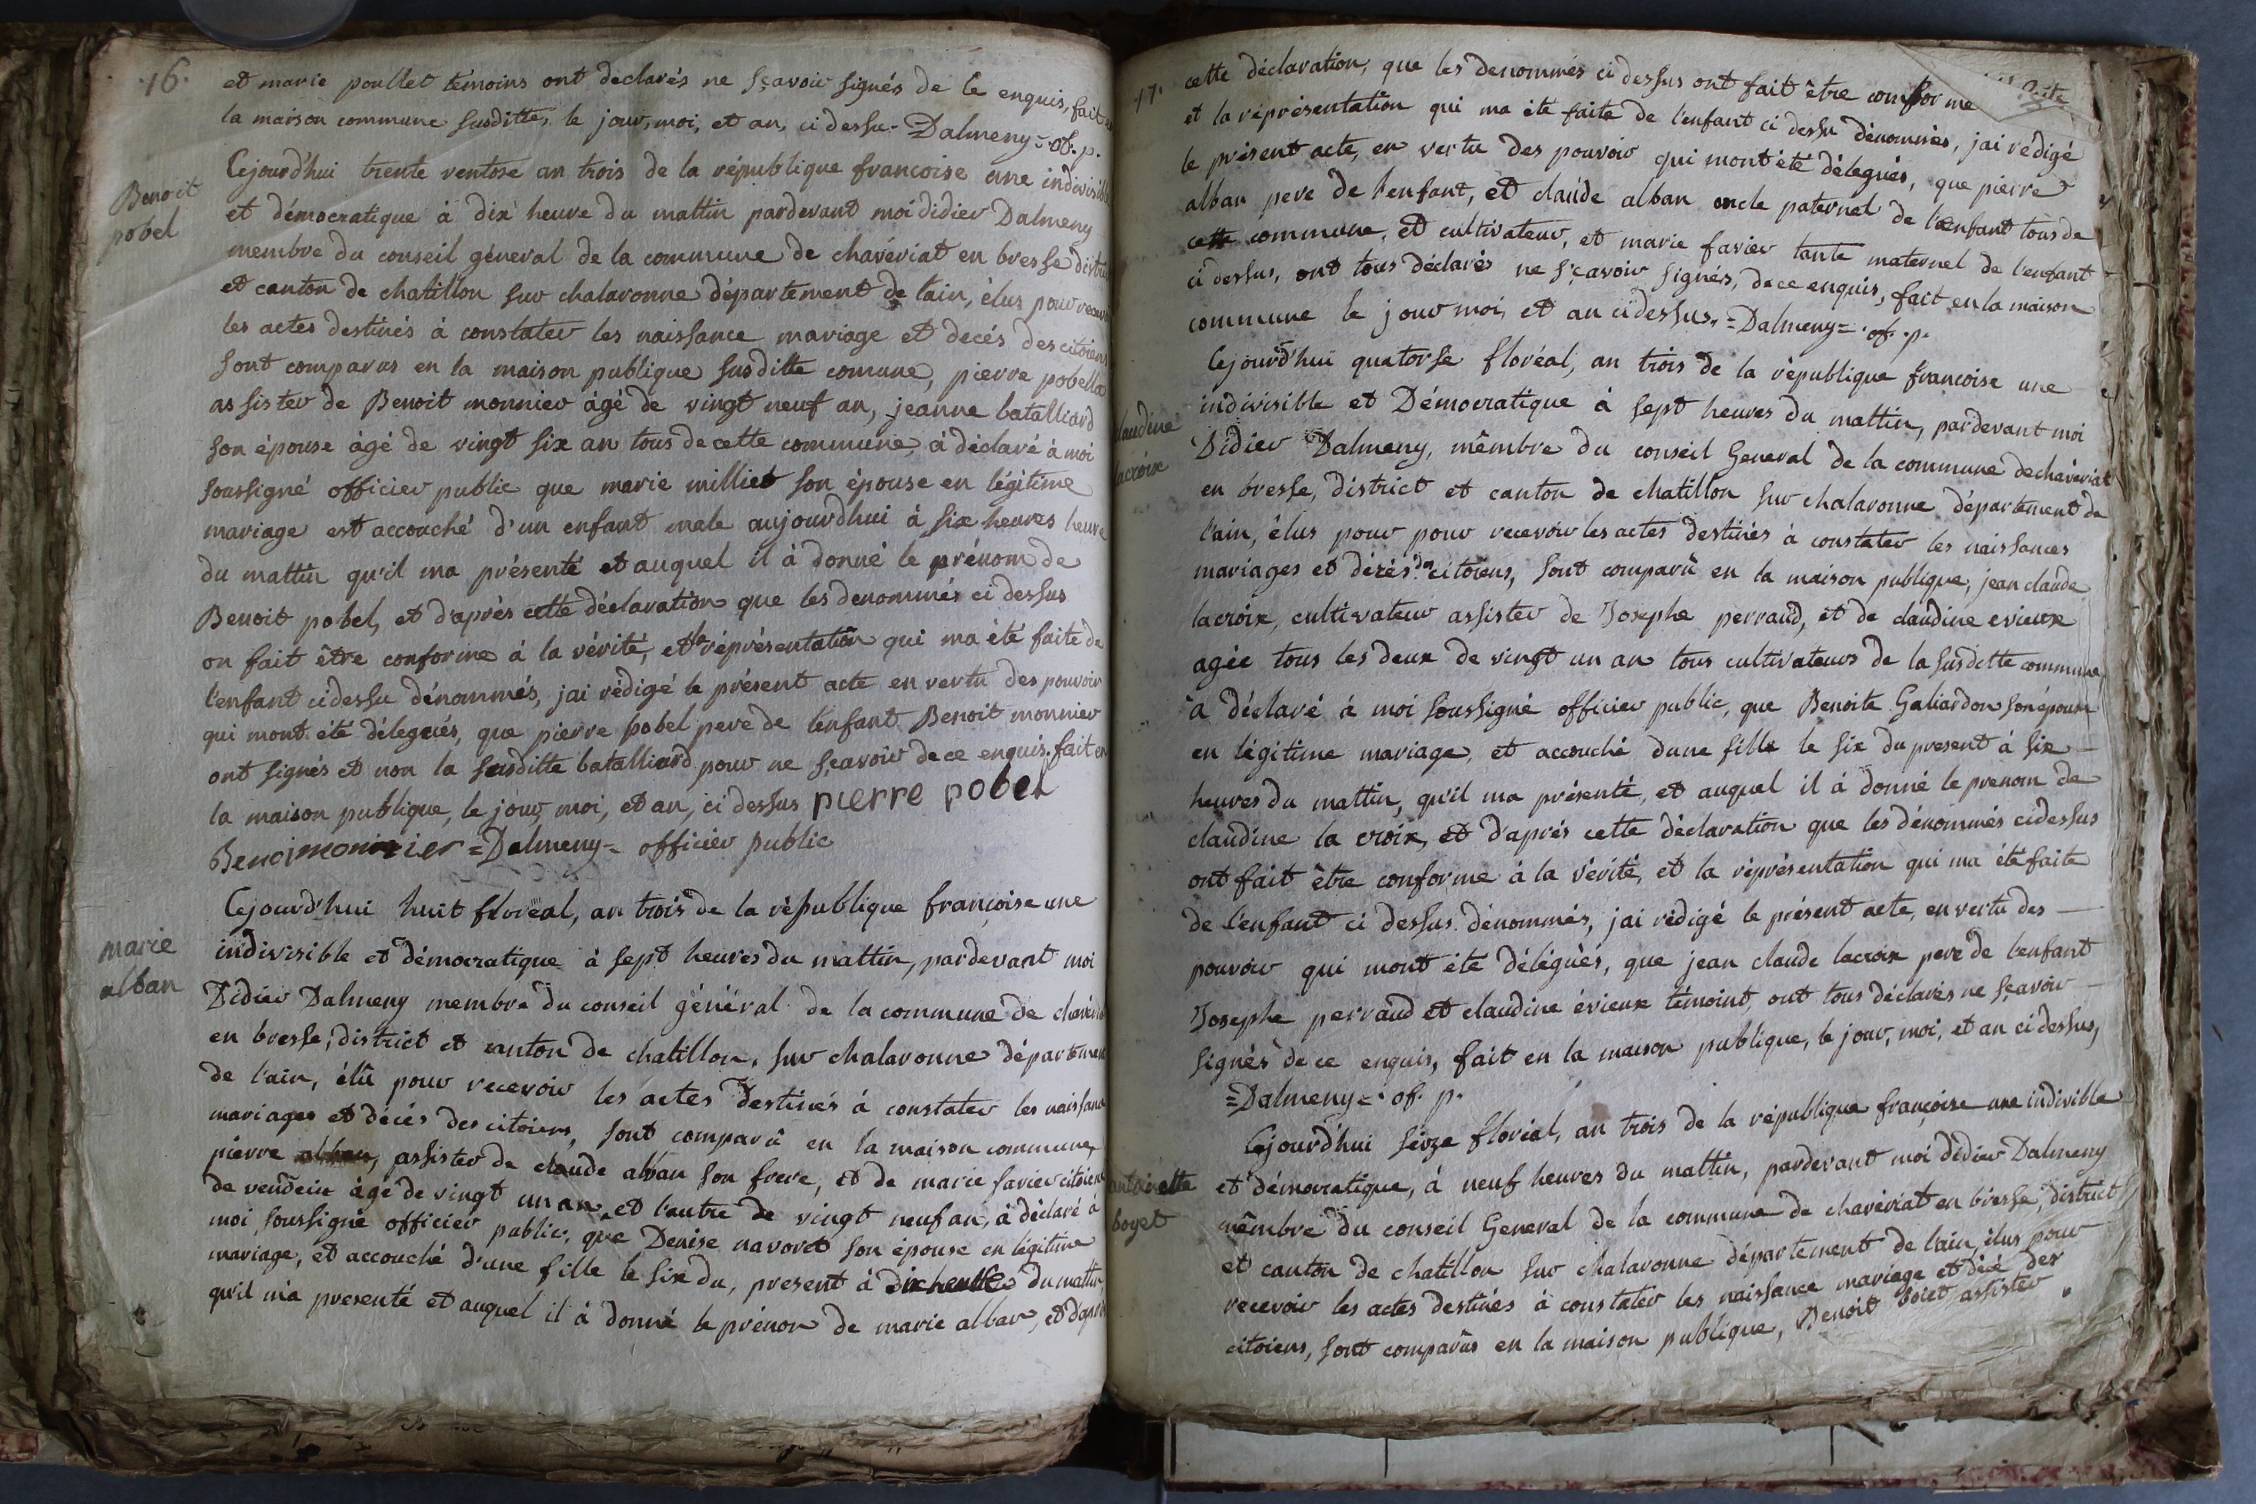 16.
et marie poullet témoins ont declarés ne sçavoir signés de ce enquis, fait en
la maison commune susditte, le jour, moi, et an, ci dessu = Dalmeny = of. p.
Benoit
pobel
Cejourd'hui trente ventose an trois de la république francoise une indivisible
et démocratique à dix heure du mattin pardevant moi didier Dalmeny
membre du conseil géneral de la commune de chavériat en bresse district
et canton de chatillon sur chalaronne département de l'ain, élus pour recevoir
les actes destinés à constater les naissance mariage et decés des citoiens
sont comparus en la maison publique susditte comune, pierre pobel
assister de Benoit monnier âgé de vingt neuf an, jeanne batalliard
son épouse âgé de vingt six an tous de cette commune, à déclaré à moi
soussigné officier public que marie milliet son épouse en légitime
mariage est accouché d'un enfant male aujourdhui à six heures heure
du mattin qu'il ma présenté et auquel il à donné le prénom de
Benoit pobel, et d'après cette déclaration que les denommés ci dessus
on fait être conforme à la vérité, et la réprésentation qui ma été faite de
l'enfant cidessu dénommés, jai rédigé le présent acte en vertu des pouvoir
qui mont été délegués, que pierre pobel pere de l'enfant Benoit monnier
ont signés et non la susditte batalliard pour ne sçavoir de ce enquis. fait en
la maison publique, le jour, moi, et an, ci dessus pierre pobel
Benoi monnier = Dalmeny = officier public
marie
alban
Cejourd'hui huit floréal, an trois de la république françoise une
indivisible et démocratique à sept heures du mattin, pardevant moi
Didier Dalmeny membre du conseil général de la commune de chavériat
en bresse, district et canton de chatillon, sur chalaronne département
de l'ain, élû pour recevoir les actes destinés à constater les naissance
mariages et décés des citoiens, sont comparû en la maison commune,
pierre alban, assister de claude alban son frere, et de marie favier citoiens
de vendein âgé de vingt un an, et l'autre de vingt neuf an, à déclaré à
moi soussigné officier public, que Denise navoret son épouse en légitime
mariage, et accouché d'une fille le six du, present à dix heure du mattin
qu'il m'a presenté et auquel il à donné le prénon de marie alban, et d'après
17.
cette déclaration, que les denommés ci dessus ont fait être conforme
et la réprésentation qui ma été faite de l'enfant ci dessu dénommés, jai rédigé
le présent acte, en vertu des pouvoir qui mont été délegués, que pierre
alban pere de l'enfant, et claude alban oncle paternel de l'enfant tous de
cette commune, et cultivateur, et marie favier tante maternel de l'enfant
ci dessus, ont tous déclarés ne sçavoir signés, de ce enquis, fait en la maison
commune le jour moi, et an ci dessus. = Dalmeny = of. p.
claudine
lacroix
Cejourd'hui quatorse floréal, an trois de la république francoise une
indivisible et Démocratique à sept heures du mattin, pardevant moi
Didier Dalmeny, mêmbre du conseil General de la commune de chavériat
en bresse, district et canton de chatillon sur chalaronne département de
l'ain, élus pour pour recevoir les actes destinés à constater les naissances
mariages et décés des citoiens, sont comparû en la maison publique, jean claude
lacroix, cultivateur assister de Josephe perraud, et de claudine evieux
agée tous les deux de vingt un an tous cultivateurs de la susditte commune
à déclaré à moi soussigné officier public, que Benoite Galiardon son épouse
en légitime mariage, et accouché dune fille le six du present à six
heures du mattin, qu'il ma présenté, et auquel il à donné le prenom de
claudine la croix, et d'aprés cette déclaration que les dénommés cidessus
ont fait être conforme à la vérité, et la réprésentation qui ma été faite
de l'enfant ci dessus dénommés, jai rédigé le présent acte, en vertu des
pouvoir qui mont été délégués, que jean claude lacroix pere de l'enfant
Josephe perraud et claudine évieux témoint, ont tous déclarés ne sçavoir
signés de ce enquis, fait en la maison publique, le jour, moi, et an ci dessus,
= Dalmeny = of. p.
antoinette
boyet
Cejourd'hui séize floréal, an trois de la république françoise une indivible
et démocratique, à neuf heures du mattin, pardevant moi didier Dalmeny
mêmbre du conseil General de la commune de chavériat en bresse, district
et canton de chatillon sur chalaronne département de l'ain, élus pour
recevoir les actes destinés à constater les naissance mariage et décé des
citoiens, sont comparûs en la maison publique, Benoit boiet assister